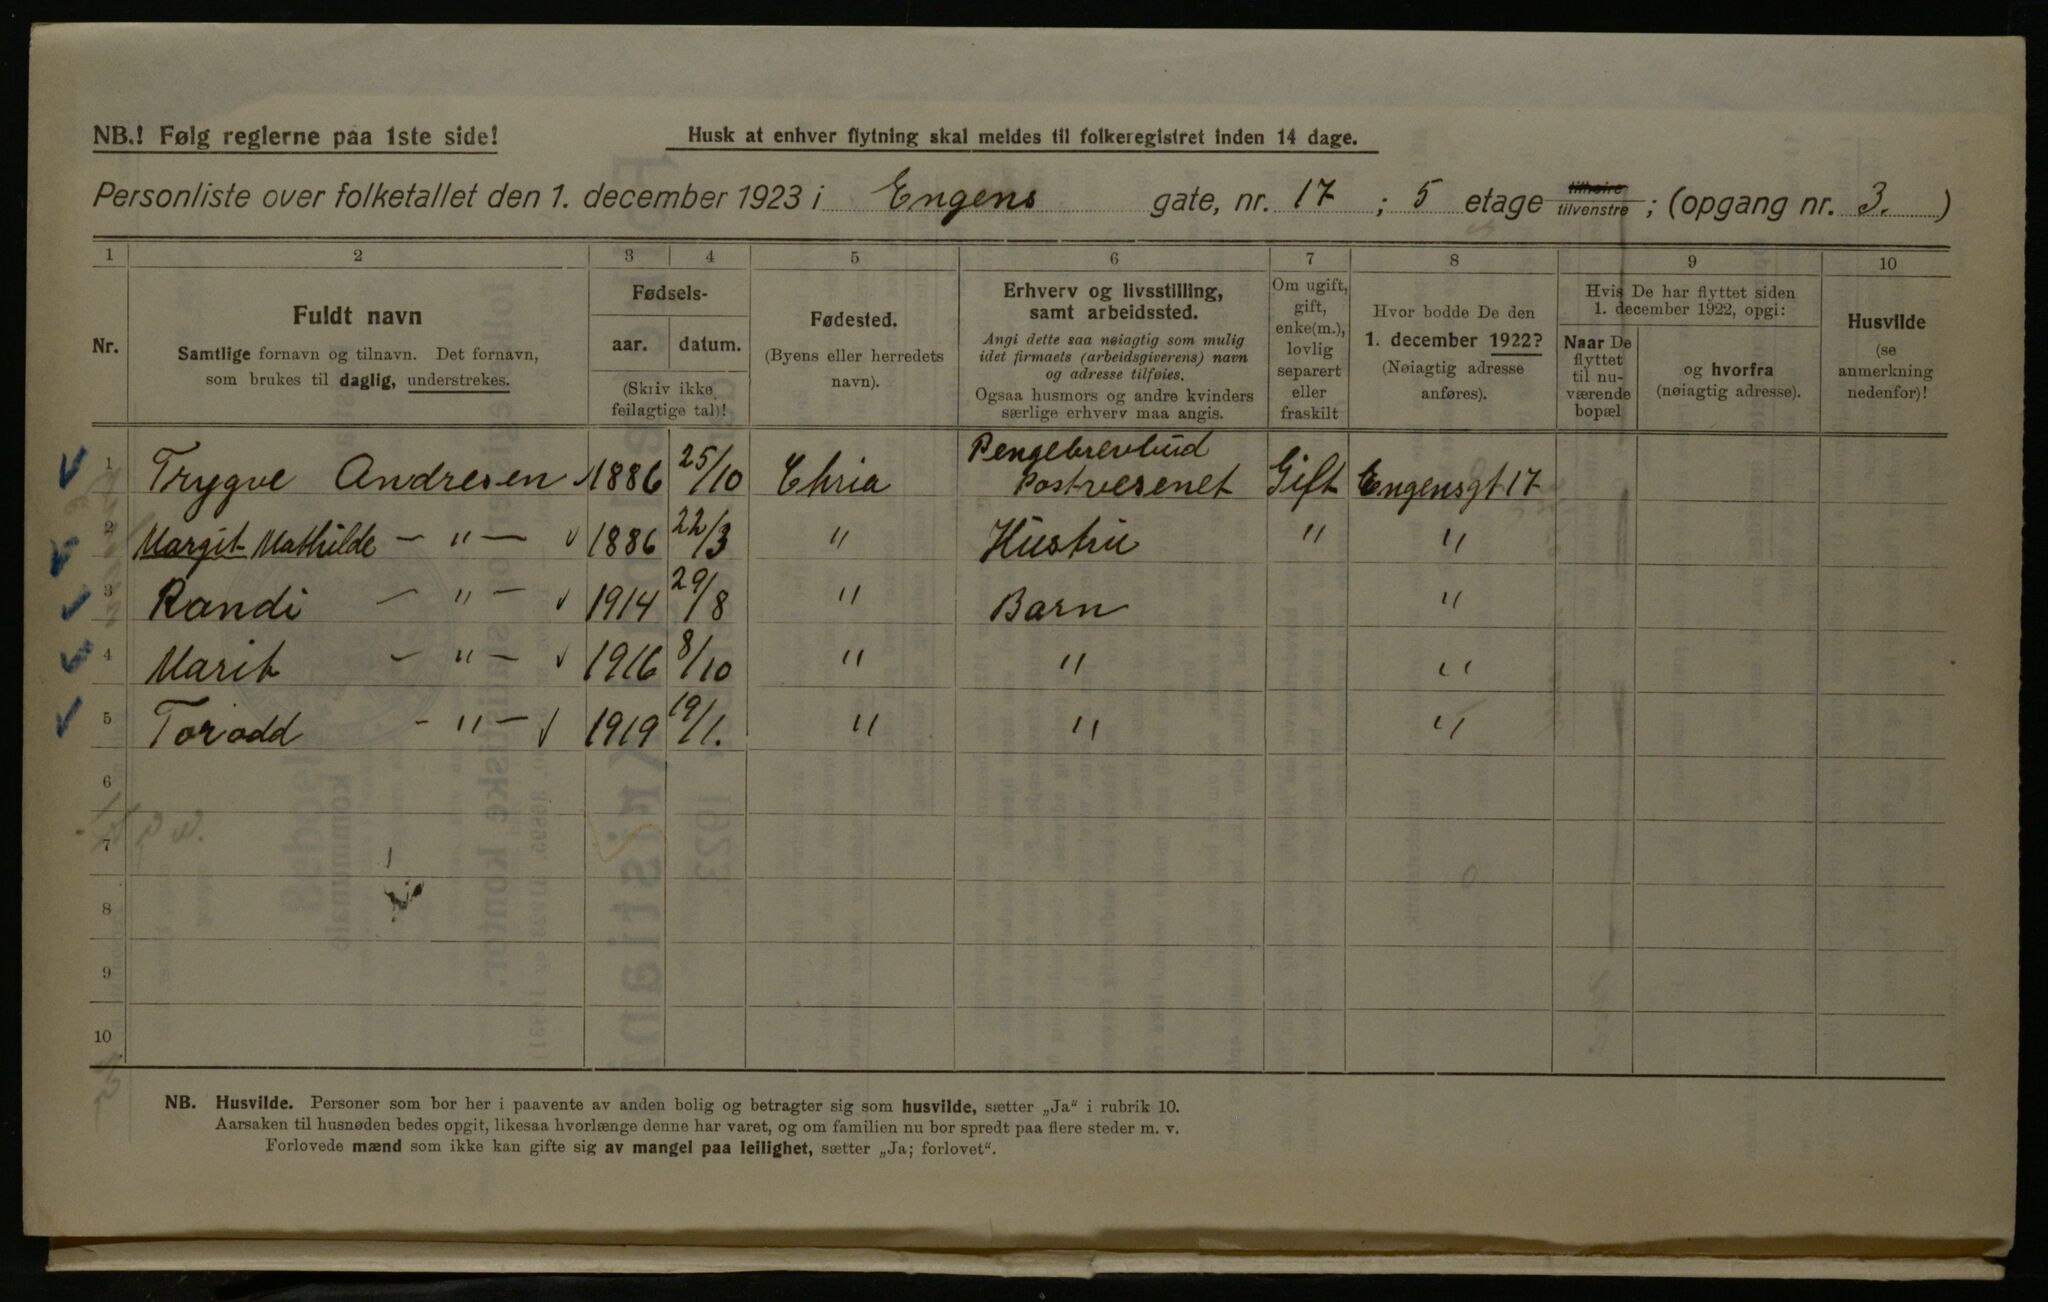 NB.! Følg reglerne paa 1ste side!
Husk at enhver flytning skal meldes til folkeregistret inden 14 dage.
Personliste over folketallet den 1. december 1923 i Engens gate, nr. 17 ; 5 etage tilhøire tilvenstre ; (opgang nr. 3. )
1 2 3 4 5 6 7 8 9 10
Nr.
Fuldt navn
Samtlige fornavn og tilnavn. Det fornavn,
som brukes til daglig, understrekes.
Fødsels-
aar. datum.
(Skriv ikke
feilagtige tal)!
Fødested.
(Byens eller herredets
navn).
Erhverv og livsstilling,
samt arbeidssted.
Angi dette saa nøiagtig som mulig
idet firmaets (arbeidsgiverens) navn
og adresse tilføies.
Ogsaa husmors og andre kvinders
særlige erhverv maa angis.
Om ugift,
gift,
enke(m.),
lovlig
separert
eller
fraskilt
Hvor bodde De den
1. december 1922?
(Nøiagtig adresse
anføres).
Hvis De har flyttet siden
1. december 1922, opgi:
Naar De
flyttet
til nu-
værende
bopæl
og hvorfra
(nøiagtig adresse).
Husvilde
(se
anmerkning
nedenfor)!
1 Trygve Andresen 1886 25/10 Chria Pengebrevbud Postvesenet Gift Engensgt 17
2 Margit Mathilde — " — 1886 22/3 " Hustru " "
3 Randi — " — 1914 29/8 " Barn "
4 Marit — " — 1916 8/10 " " "
5 Torodd - " — 1919 19/1. " " "
6
7
8
9
10
NB. Husvilde. Personer som bor her i paavente av anden bolig og betragter sig som husvilde, sætter „Ja“ i rubrik 10.
Aarsaken til husnøden bedes opgit, likesaa hvorlænge denne har varet, og om familien nu bor spredt paa flere steder m. v.
Forlovede mænd som ikke kan gifte sig av mangel paa leilighet, sætter „Ja; forlovet“.